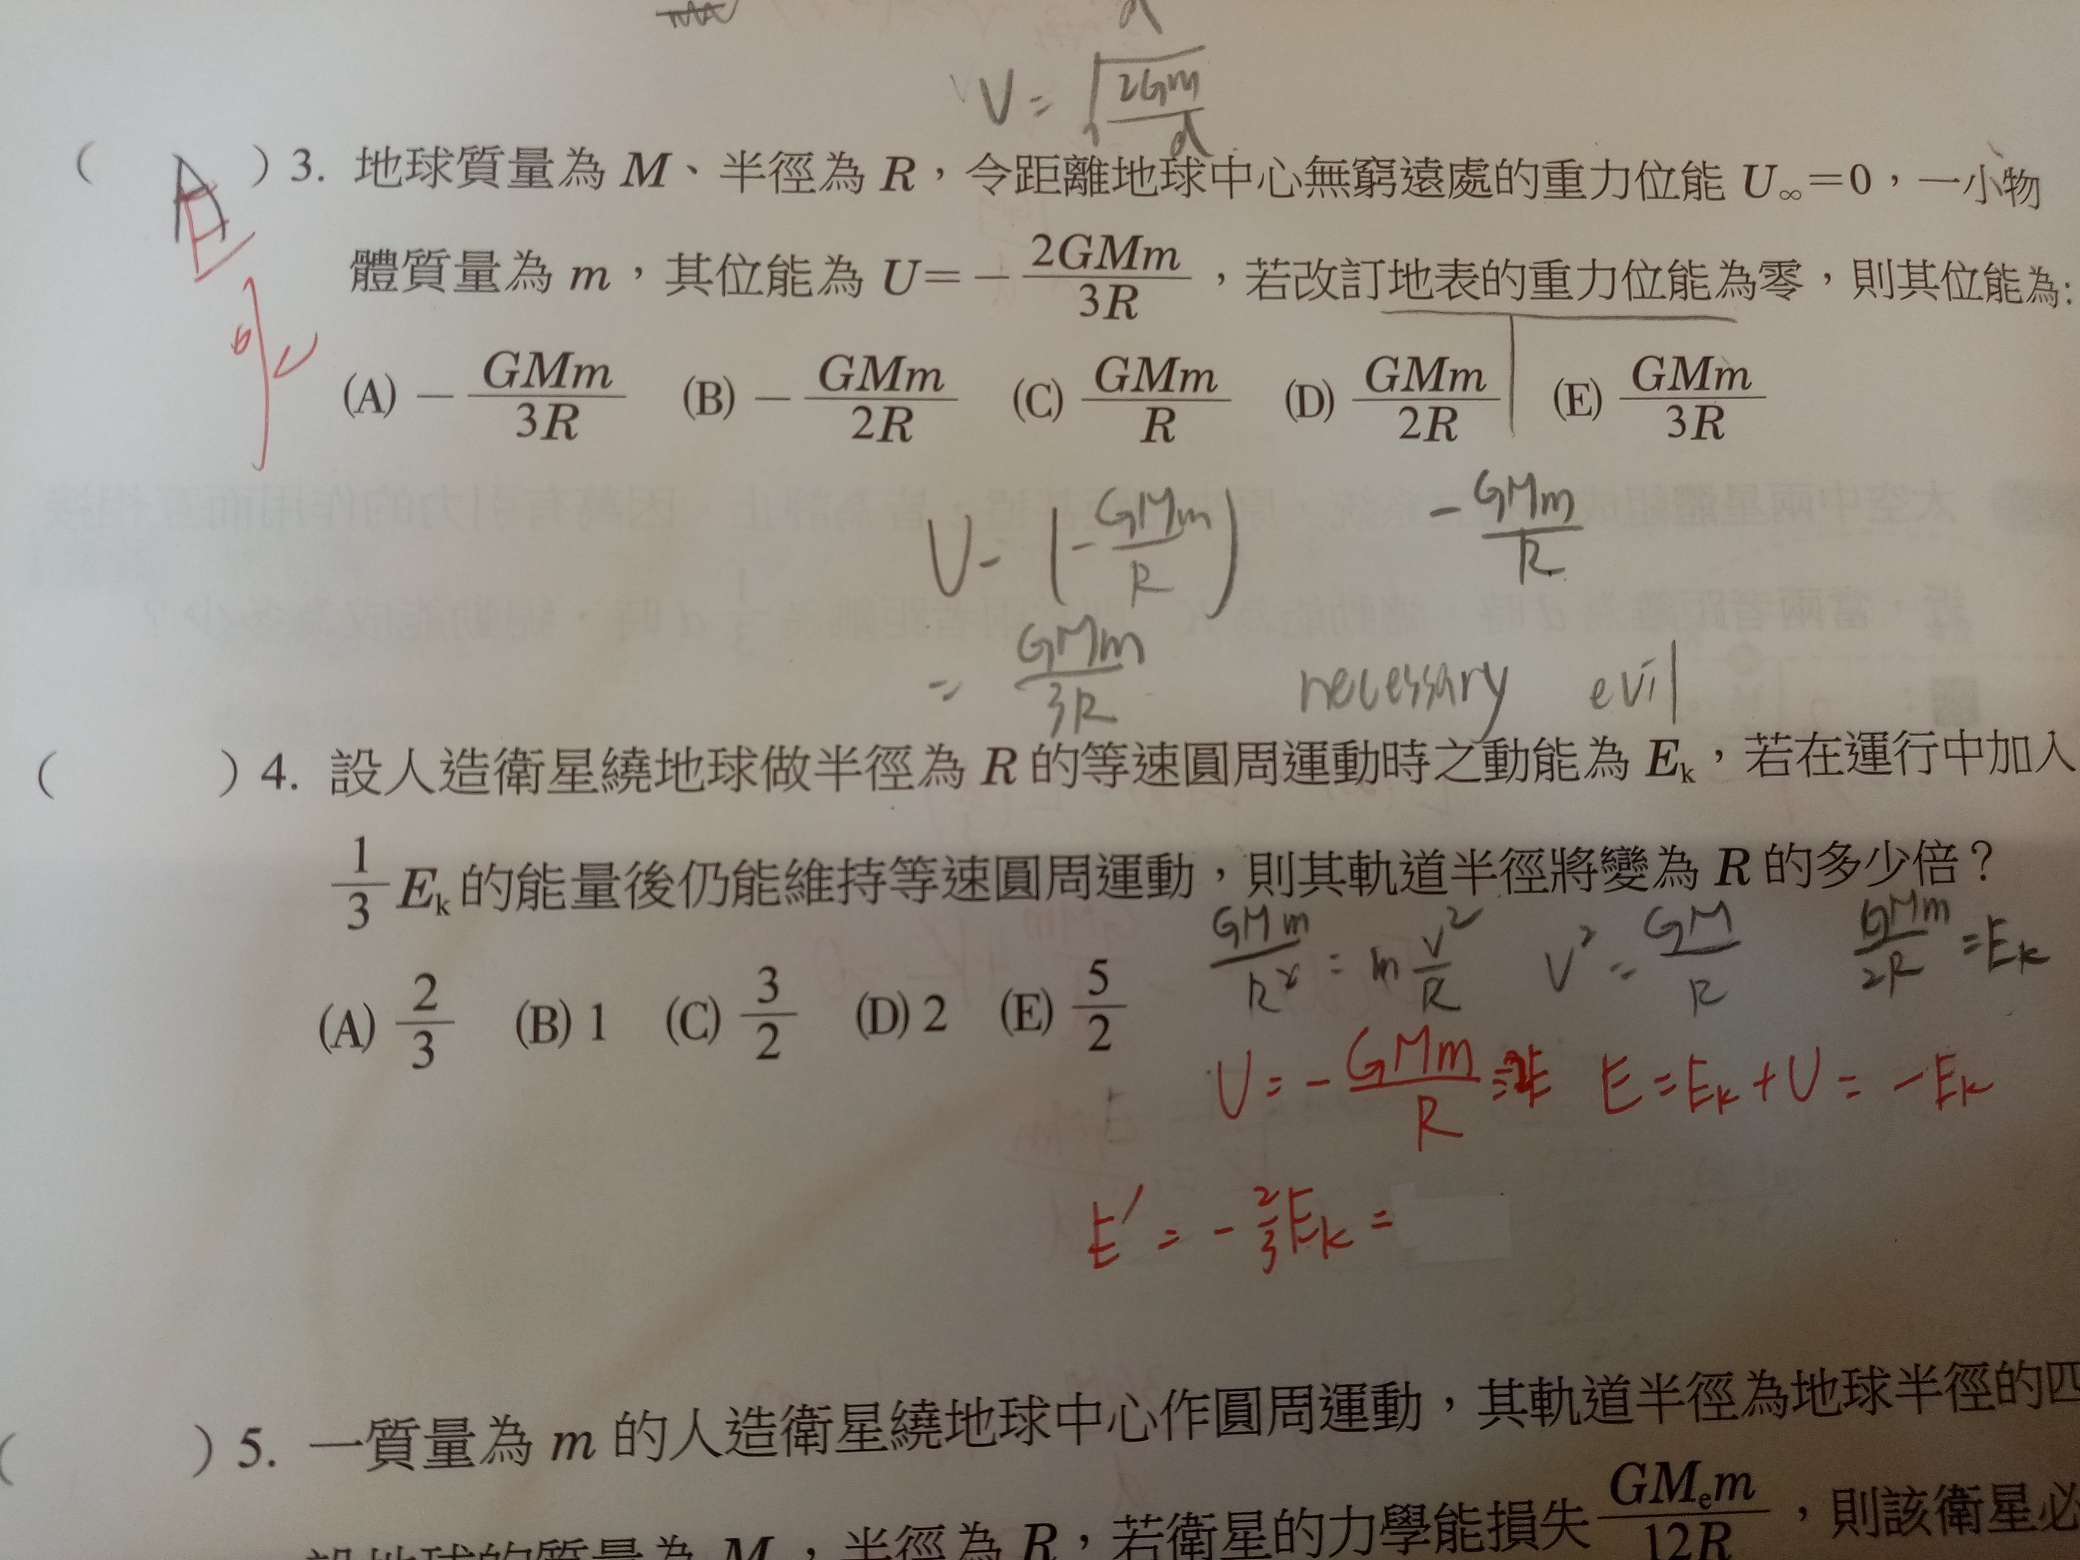 V = √(2Gm/d)
( A E ) 3. 地球質量為 M、半徑為 R，令距離地球中心無窮遠處的重力位能 U∞=0，一小物
體質量為 m，其位能為 U=-2GMm/3R，若改訂地表的重力位能為零，則其位能為:
(A) -GMm/3R (B) -GMm/2R (C) GMm/R (D) GMm/2R (E) GMm/3R
U - (-GMm/R) -GMm/R
= GMm/3R necessary evil
( ) 4. 設人造衛星繞地球做半徑為 R 的等速圓周運動時之動能為 Ek，若在運行中加入
1/3 Ek 的能量後仍能維持等速圓周運動，則其軌道半徑將變為 R 的多少倍？
GMm/R² = m V²/R V² = GM/R GMm/2R = Ek
(A) 2/3 (B) 1 (C) 3/2 (D) 2 (E) 5/2
U = -GMm/R E = Ek + U = -Ek
E' = -2/3 Ek =
( ) 5. 一質量為 m 的人造衛星繞地球中心作圓周運動，其軌道半徑為地球半徑的四
設地球的質量為 M，半徑為 R，若衛星的力學能損失 GMem/12R，則該衛星必